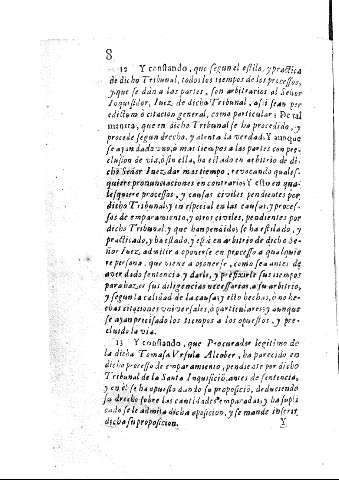 8
12 Y constando, que segun el estilo, y practica
de dicho Tribunal, todos los tiempos de los processos,
y que se dàn a las partes, son arbitrarios al Señor
Inquisidor, Iuez de dicho Tribunal, assi sean per
edictum ò citacion general, como particular; De tal
manera, que en dicho Tribunal se ha procedido, y
procede segun drecho, y atenta la verdad. Y aunque
se ayan dado uno, ò mas tiempos a las partes con pre-
clusion de via, ò sin ella, ha estado en arbitrio de di-
chò Señor Iuez, dar mas tiempo, revocando quales-
quiere pronunciaciones en contrario; Y esto en qua-
lesquiere processos, y causas civiles pendientes por
dicho Tribunal; y en especial en las causas, y proces-
sos de emparamento, y otros civiles, pendientes por
dicho Tribunal; y que han pendido se ha estilado, y
practicado, y ha estado, y està en arbitrio de dicho Se-
ñor Iuez, admitir a oponerse en processo a qualquie
re persona, que viene a oponerse, como sea antes de
aver dado sentencia, y darle, y prefixirle sus tiempos
para hazer sus diligencias necessarias a su arbitrio,
y segun la calidad de la causa; y esto hechas, ò no he-
chas citaciones universales, ò particulares; y aunque
se ayan precisado los tiempos a los opuestos, y pre-
cluido la via.
13 Y constando, que Procurador legitimo de
la dicha Tomasa Vrsula Alcober, ha parecido en
dicho processo de emparamiento, pendiente por dicho
Tribunal de la Santa Inquisiciõ, antes de sentencia,
y en èl se ha opuesto dando su proposicion, deduciendo
su drecho sobre las cantidades emparadas; y ha supli
cado se le admita dicha oposicion, y se mande inserir
dicha su proposicion.
Y